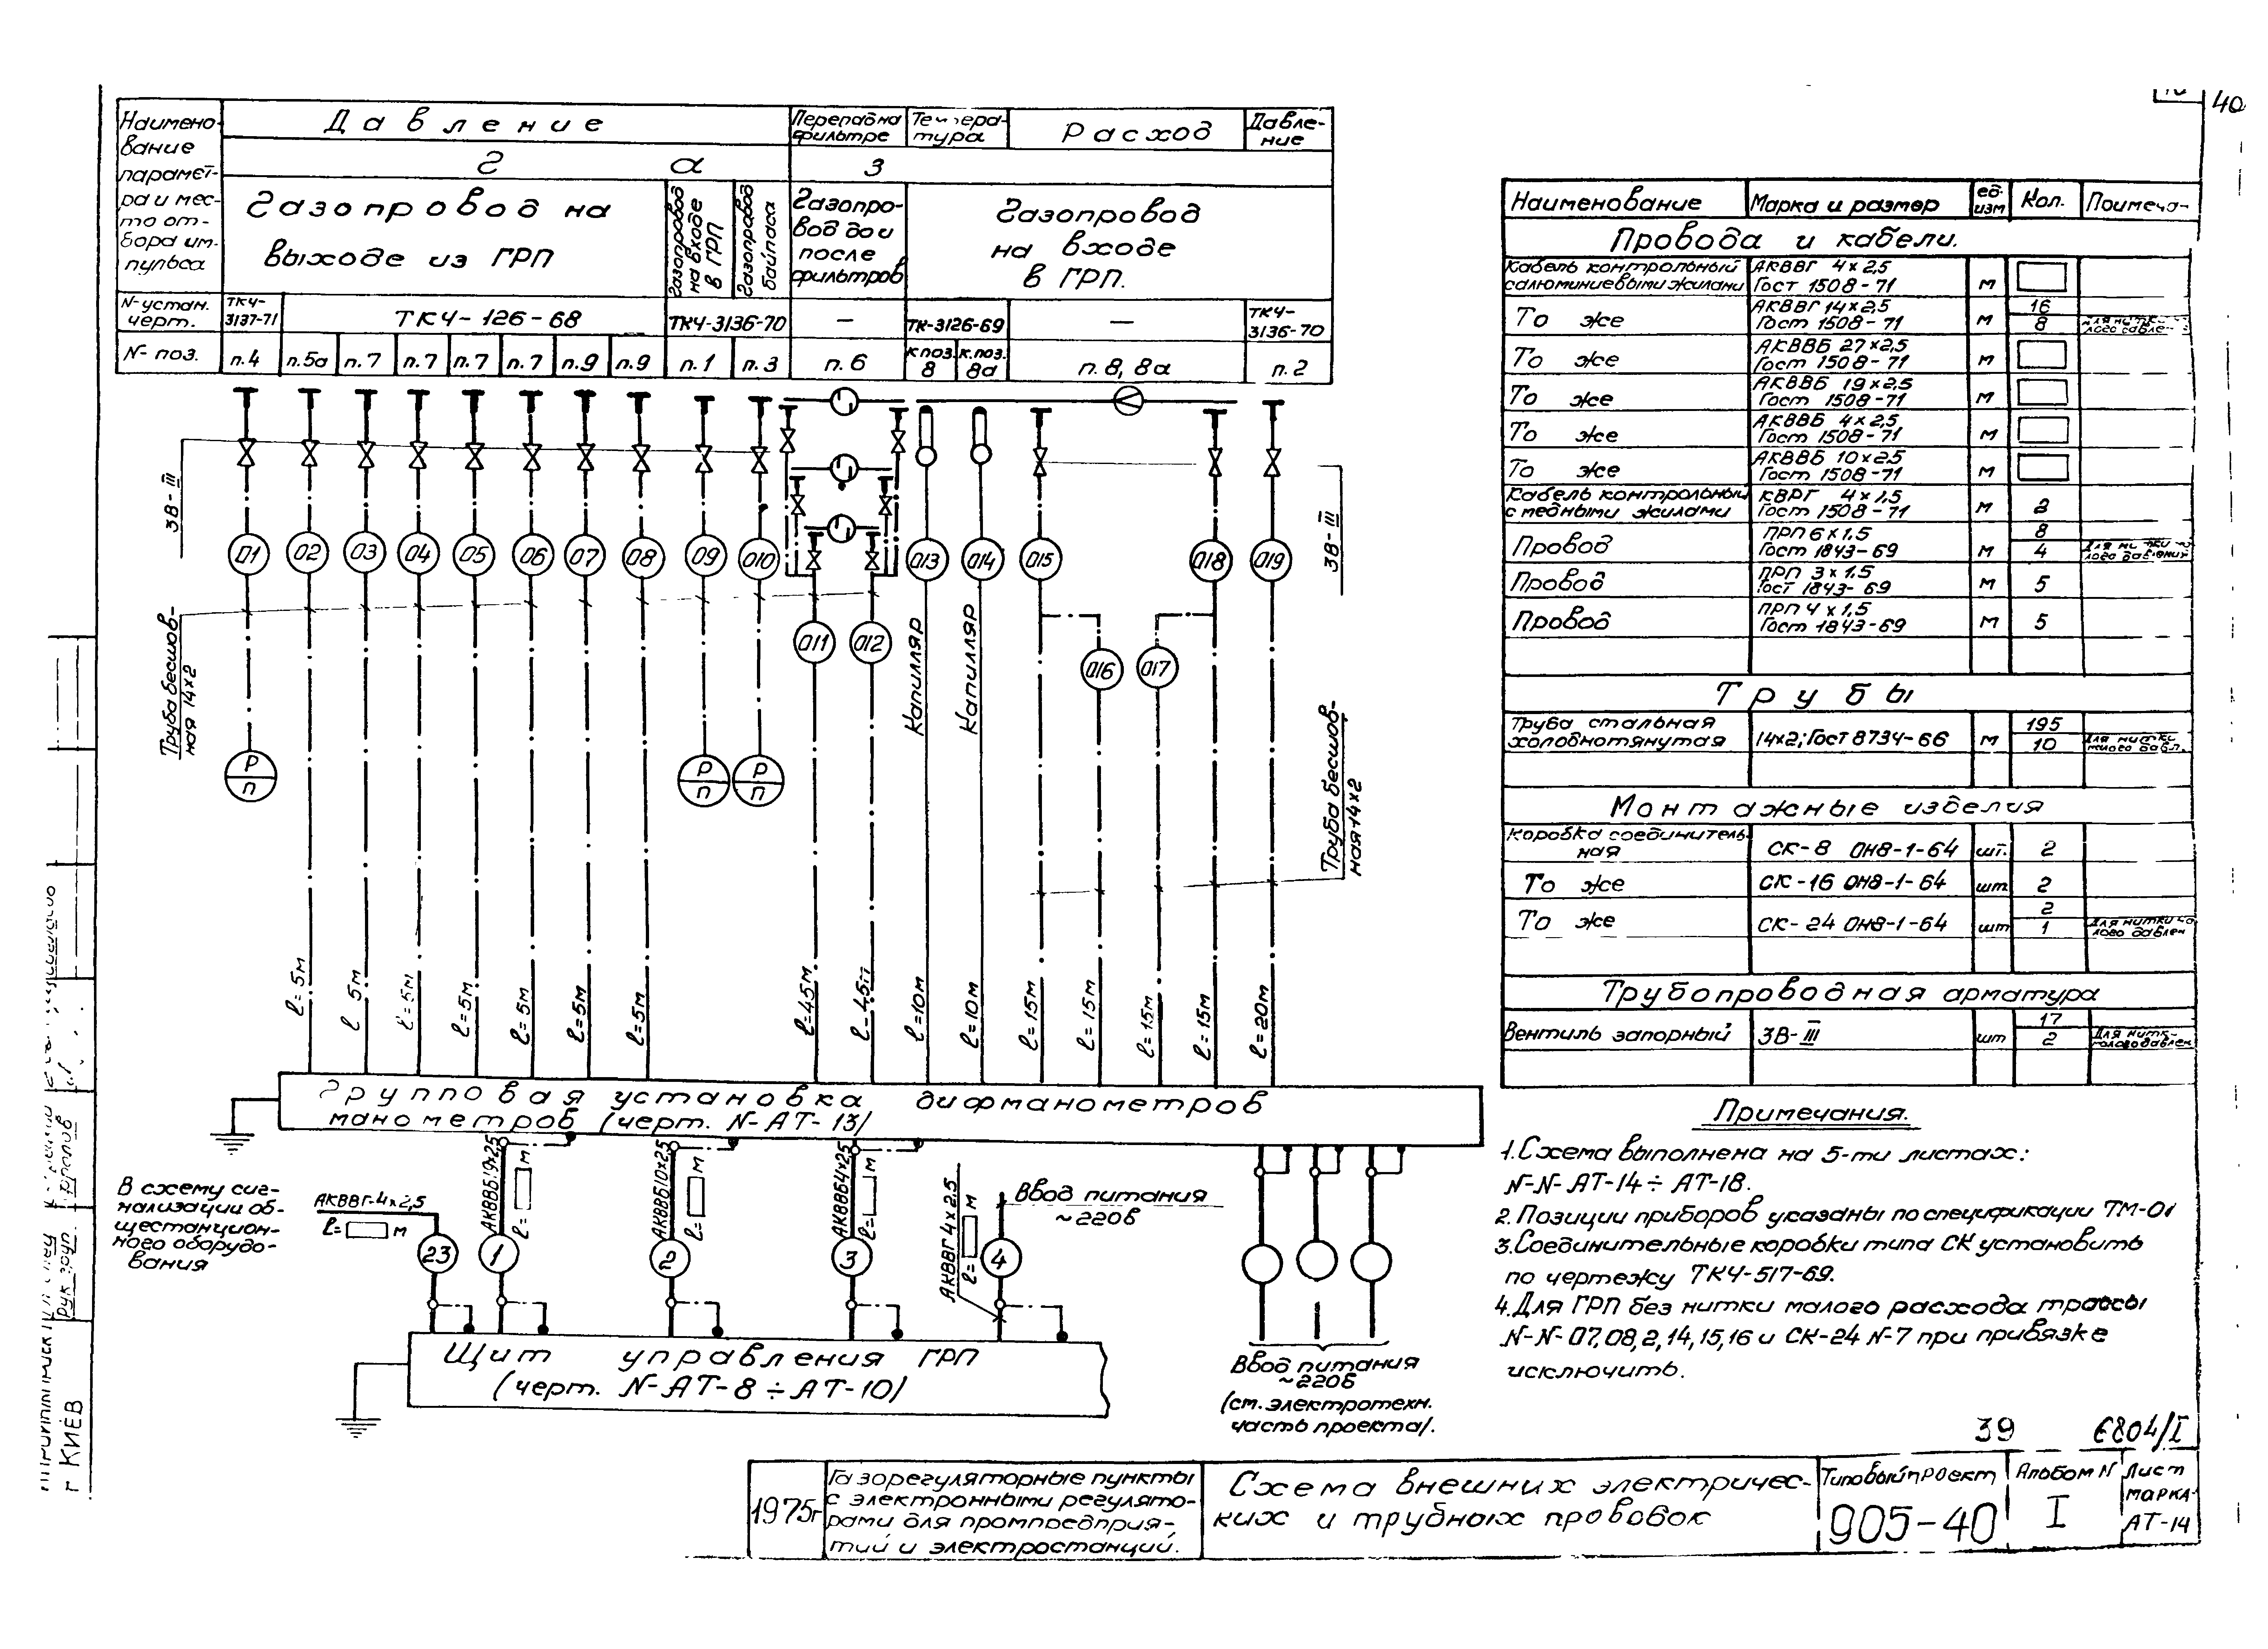 40
Наимено-
вание
парамет-
ра и мес-
то от-
бора им-
пульса
Давление
Перепад на
фильтре
Температура
Расход
Давле-
ние
г а з
Газопровод на
выходе из ГРП
Газопровод
на входе
в ГРП
Газопровод
байпаса
Газопро-
вод до и
после
фильтров
Газопровод
на входе
в ГРП.
N-устан.
черт.
ТКЧ-
3137-71
ТКЧ-126-68
ТКЧ-3136-70
—
ТК-3126-69
—
ТКЧ-
3136-70
N- поз.
п.4
п.5а
п.7
п.7
п.7
п.7
п.9
п.9
п.1
п.3
п.6
к поз.
8
к.поз.
8а
п.8, 8а
п.2
ЗВ-III
ЗВ-III
01
02
03
04
05
06
07
08
09
010
013
014
015
018
019
011
012
016
017
Труба бесшов-
ная 14х2
Р
п
Р
п
Р
п
Капилляр
Капилляр
Труба бесшов-
ная 14х2
ℓ=5м
ℓ 5м
ℓ=5м
ℓ=5м
ℓ=5м
ℓ=5м
ℓ=5м
ℓ=4,5м
ℓ-4,5м
ℓ=10м
ℓ=10м
ℓ=15м
ℓ=15м
ℓ=15м
ℓ=15м
ℓ=20м
Групповая установка дифманометров
манометров (черт. N-АТ-13)
В схему сиг-
нализации об-
щестанцион-
ного оборудо-
вания
АКВВГ-4х2,5
ℓ= м
АКВВБ19х2,5
ℓ= м
АКВВБ10х2,5
ℓ= м
АКВВБ4х2,5
ℓ= м
АКВВГ 4х2.5
ℓ= м
Ввод питания
~220в
23
1
2
3
4
Щит управления ГРП
(черт. N-АТ-8÷АТ-10)
Ввод питания
~220в
(см. электротехн.
часть проекта).
Наименование
Марка и размер
ед.
изм
Кол.
Примеча-
Провода и кабели.
Кабель контрольный
с алюминиевыми жилами
АКВВГ 4х2,5
Гост 1508-71
м
То же
АКВВГ 14х2,5
Гост 1508-71
м
16
8
То же
АКВВБ 27х2,5
Гост 1508-71
м
То же
АКВВБ 19х2,5
Гост 1508-71
м
То же
АКВВБ 4х2,5
Гост 1508-71
м
То же
АКВВБ 10х2,5
Гост 1508-71
м
Кабель контрольный
с медными жилами
КВРГ 4х1,5
Гост 1508-71
м
Провод
ПРП 6х1.5
Гост 1843-69
м
8
4
Провод
ПРП 3х1.5
Гост 1843-69
м
5
Провод
ПРП 4х1,5
Гост 1843-69
м
5
Трубы
Труба стальная
холоднотянутая
14х2; Гост 8734-66
м
195
10
Монтажные изделия
Коробка соединитель-
ная
СК-8 ОН8-1-64
шт.
2
То же
СК-16 ОН8-1-64
шт
2
То же
СК-24 ОН8-1-64
шт
2
1
Трубопроводная арматура
Вентиль запорный
ЗВ-III
шт
17
2
Примечания.
1.Схема выполнена на 5-ти листах:
N-N- АТ-14÷АТ-18.
2. Позиции приборов указаны по спецификации ТМ-01
3.Соединительные коробки типа СК установить
по чертежу ТКЧ-517-69.
4.Для ГРП без нитки малого расхода трассы
N-N- 07,08,2,14,15,16 и СК-24 N-7 при привязке
исключить.
39
6804/I
1975г
Газорегуляторные пункты
с электронными регулято-
рами для промпредприя-
тий и электростанций.
Схема внешних электричес-
ких и трубных проводок
Типовый проект
905-40
Альбом N
I
Лист
МАРКА
АТ-14
г КИЕВ